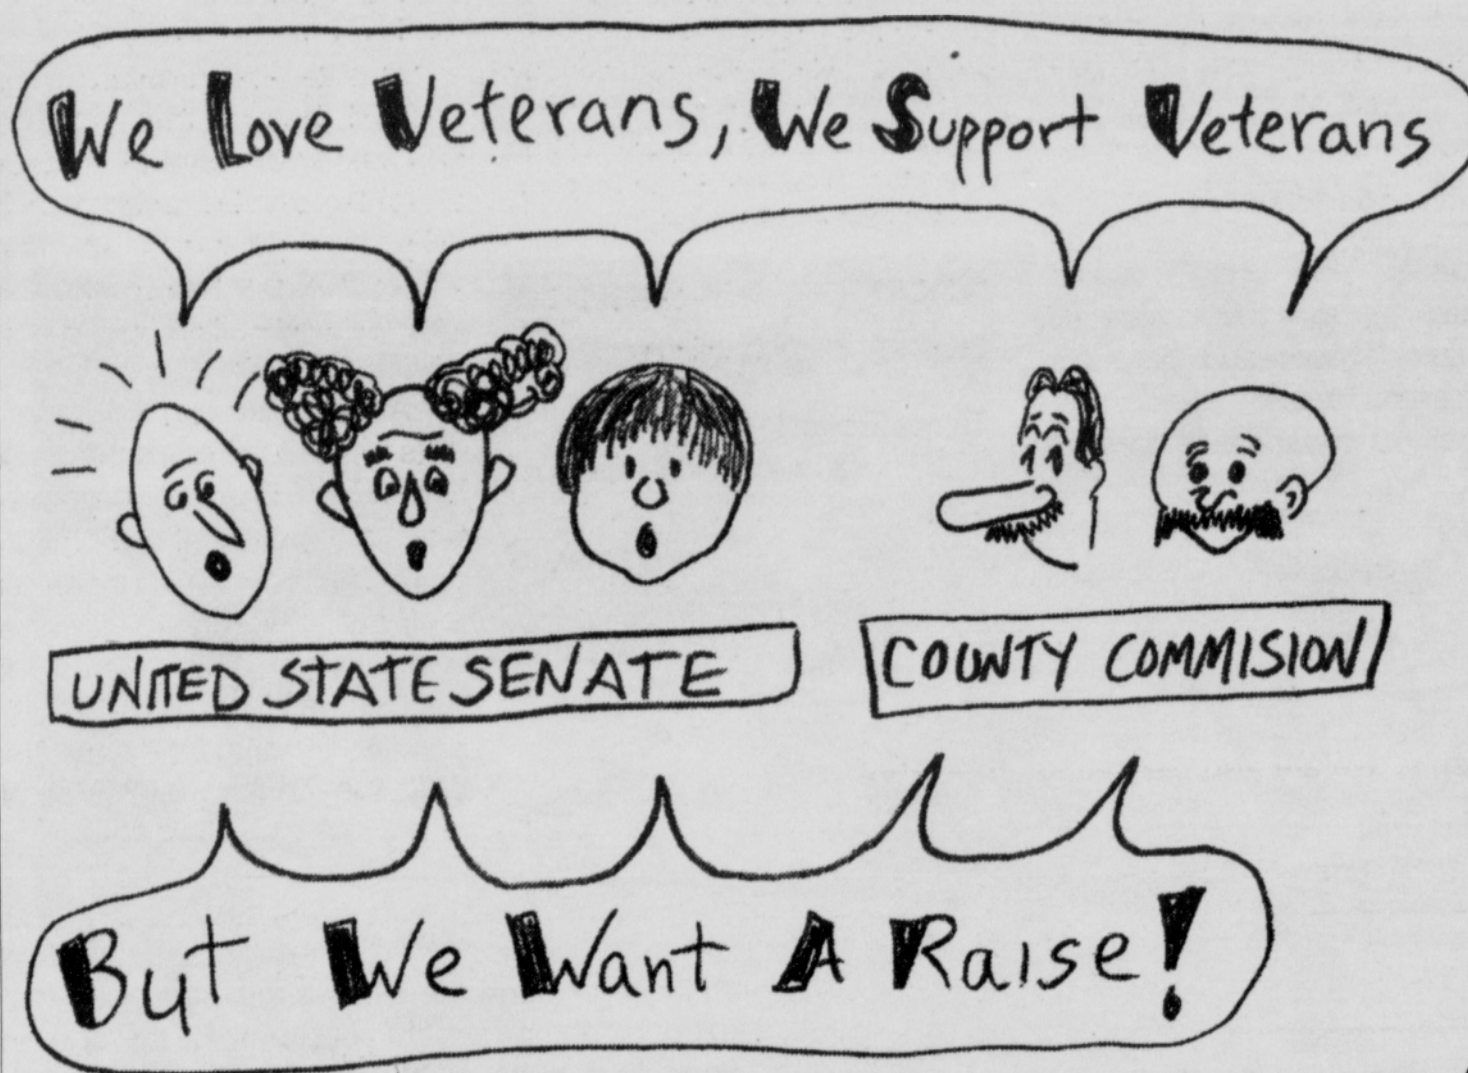 We Love Veterans, We Support Veterans
UNITED STATE SENATE
COUNTY COMMISION
But We Want A Raise!